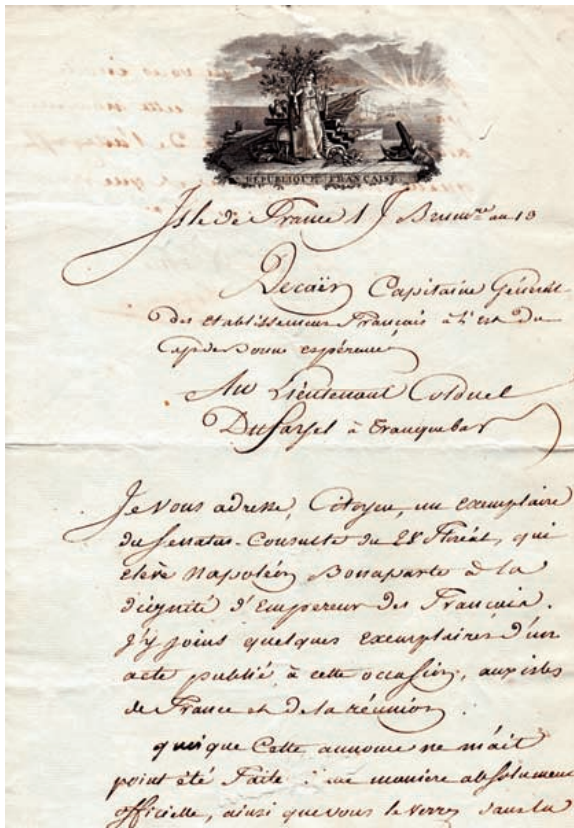 RÉPUBLIQUE FRANÇAISE.
Isle de France 1 Brum.re an 13
Decaën Capitaine Général
des établissemens Français à l'Est du
Cap de Bonne espérance
Au Lieutenant Colonel
Du à Tranquebar
Je vous adresse, Citoyen, un exemplaire
du Senatus-Consulte du 28 floréal, qui
elève Napoléon Bonaparte à la
dignité d'Empereur des Français.
J'y joins quelques exemplaires d'un
acte publié à cette occasion, aux isles
de France et de la réunion.
quoique Cette annonce ne m'ait
point été faite manière absolument
officielle, ainsi que vous le verrez dans la